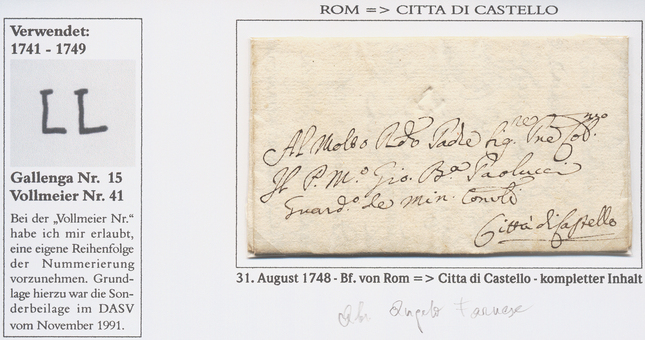 ROM => CITTA DI CASTELLO
Verwendet:
1741 - 1749
LL
Gallenga Nr. 15
Vollmeier Nr. 41
Bei der „Vollmeier Nr.“
habe ich mir erlaubt,
eine eigene Reihenfolge
der Nummerierung
vorzunehmen. Grund-
lage hierzu war die Son-
derbeilage im DASV
vom November 1991.
Al Molto Rdo Padre Sigre Pre Col.mo
Il P. M.o Gio. Ba Paolucci
Guard.o de Min. Conv.li
Città di Castello
31. August 1748 - Bf. von Rom => Citta di Castello - kompletter Inhalt
Angelo Farnese